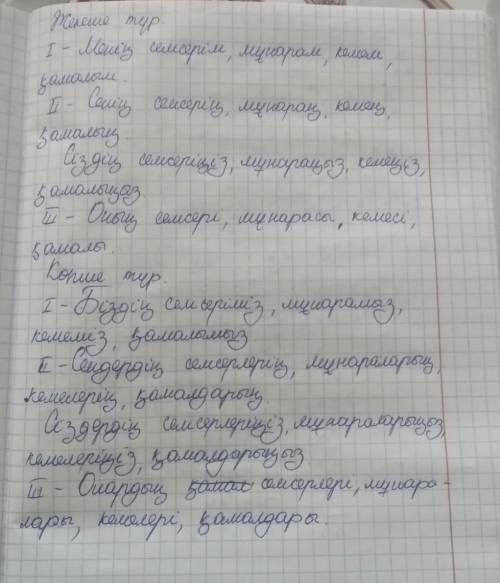 Жекеше түр
I - Менің семсерім, мұнарам, кемем,
қамалым.
II - Сенің семсерің, мұнараң, кемең,
қамалың.
Сіздің семсеріңіз, мұнараңыз, кемеңіз,
қамалыңыз.
III - Оның семсері, мұнарасы, кемесі,
қамалы.
Көпше түр.
I - Біздің семсеріміз, мұнарамыз,
кемеміз, қамаламыз.
II - Сендердің семсерлерің, мұнараларың,
кемелерің, қамалдарың.
Сіздердің семсерлеріңіз, мұнараларыңыз,
кемелеріңіз, қамалдарыңыз
III - Олардың қамал семсерлері, мұнара-
лары, кемелері, қамалдары.